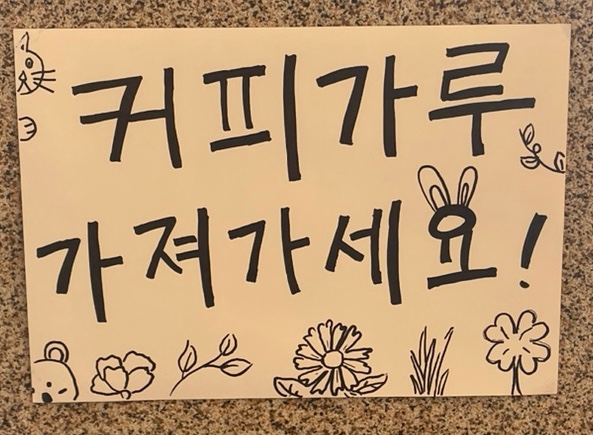 커피가루
가져가세요!